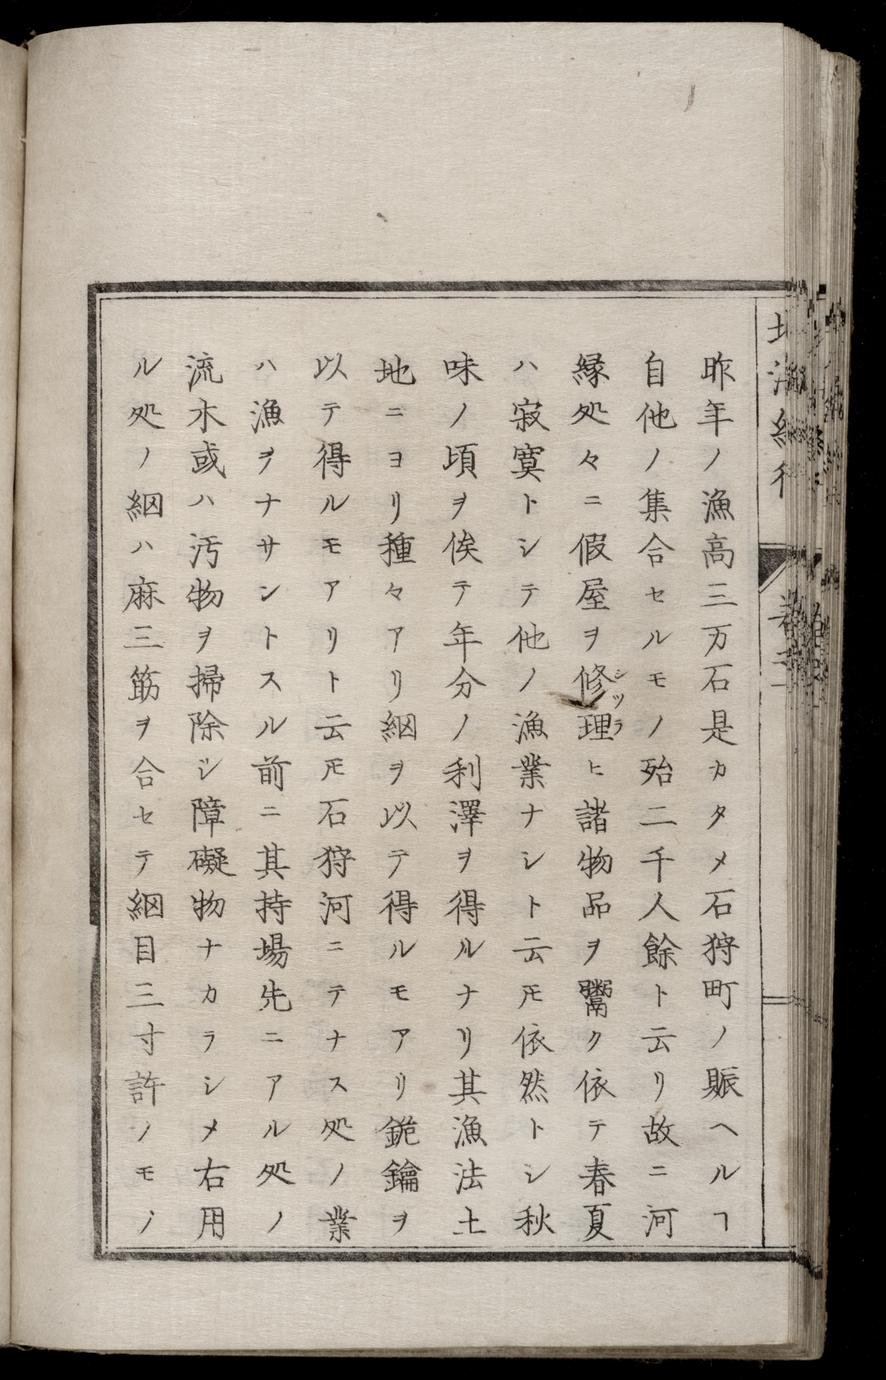 昨年ノ漁高三万石是カタメ石狩町ノ賑ヘルヿ
自他ノ集合セルモノ殆二千人餘ト云リ故ニ河
縁処々ニ假屋ヲ修理ヒ諸物品ヲ鬻ク依テ春夏
シツラ
ハ寂寞トシテ他ノ漁業ナシト云𪜈依然トシ秋
味ノ頃ヲ俟テ年分ノ利澤ヲ得ルナリ其漁法土
地ニヨリ種々アリ網ヲ以テ得ルモアリ銫鑰ヲ
以テ得ルモアリト云𪜈石狩河ニテナス処ノ業
ハ漁ヲナサントスル前ニ其持場先ニアル処ノ
流木或ハ汚物ヲ掃除シ障礙物ナカラシメ右用
ル処ノ網ハ麻三筋ヲ合セテ網目三寸許ノモノ